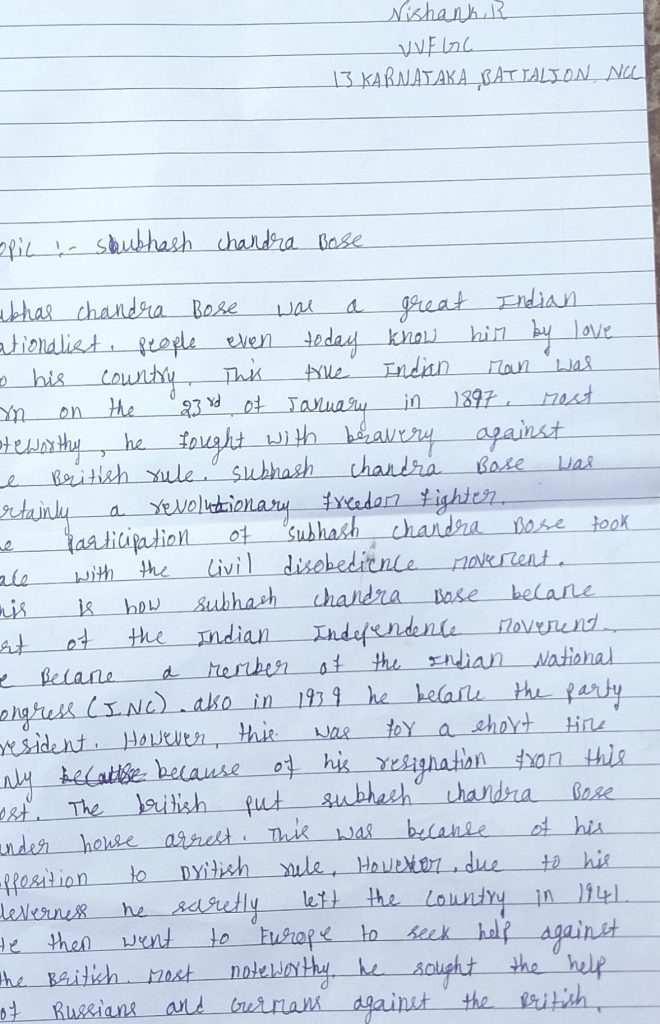 Nishank.R
VVFGC
13 KARNATAKA BATTALION NCC
opic :- Subhash chandra Bose
ubhas chandra Bose was a great Indian
ationalist. people even today know him by love
o his country. This true Indian man was
rn on the 23rd of January in 1897. most
oteworthy, he fought with bravery against
e British rule. subhash chandra Bose was
ertainly a revolutionary freedom fighter.
e participation of subhash chandra Bose took
ace with the civil disobedience movement.
his is how subhash chandra Bose became
art of the Indian Independence movement.
e Became a member of the Indian National
ongress (INC). also in 1939 he became the party
resident. However, this was for a short time
nly because of his resignation from this
ost. The british put subhash chandra Bose
under house arrest. This was because of his
pposition to British rule. However, due to his
leverness he secretly left the country in 1941.
He then went to Europe to seek help against
the British. most noteworthy, he sought the help
of Russians and Germans against the British.